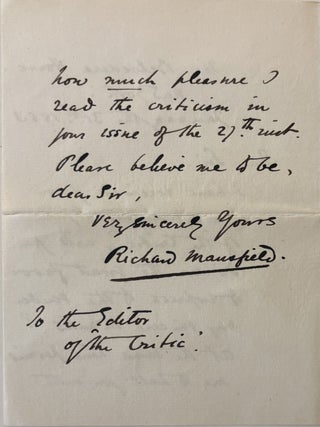 how much pleasure I
read the criticism in
your issue of the 27th inst.
Please believe me to be,
dear Sir,
very sincerely Yours
Richard Mansfield.
To the Editor
of "the Critic".